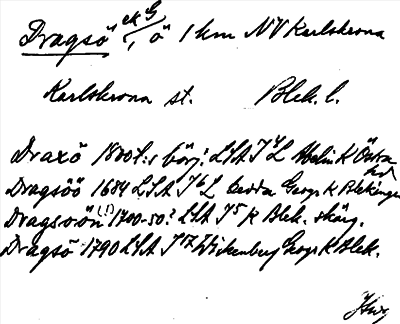 Dragsö ek G 1, ö 1 km NV Karlskrona
Karlskrona st. Blek. l.
Draxö 1800t:s börj: LSA I 4 L K Östra hd
Dragsöö 1684 LSA I 6 L Geogr K Blekinge
Dragsöön (!) 1700-50? LSA I 5 K Blek. skärg.
Dragsö 1790 LSA I 17 Wickenberg Geogr K Blek.